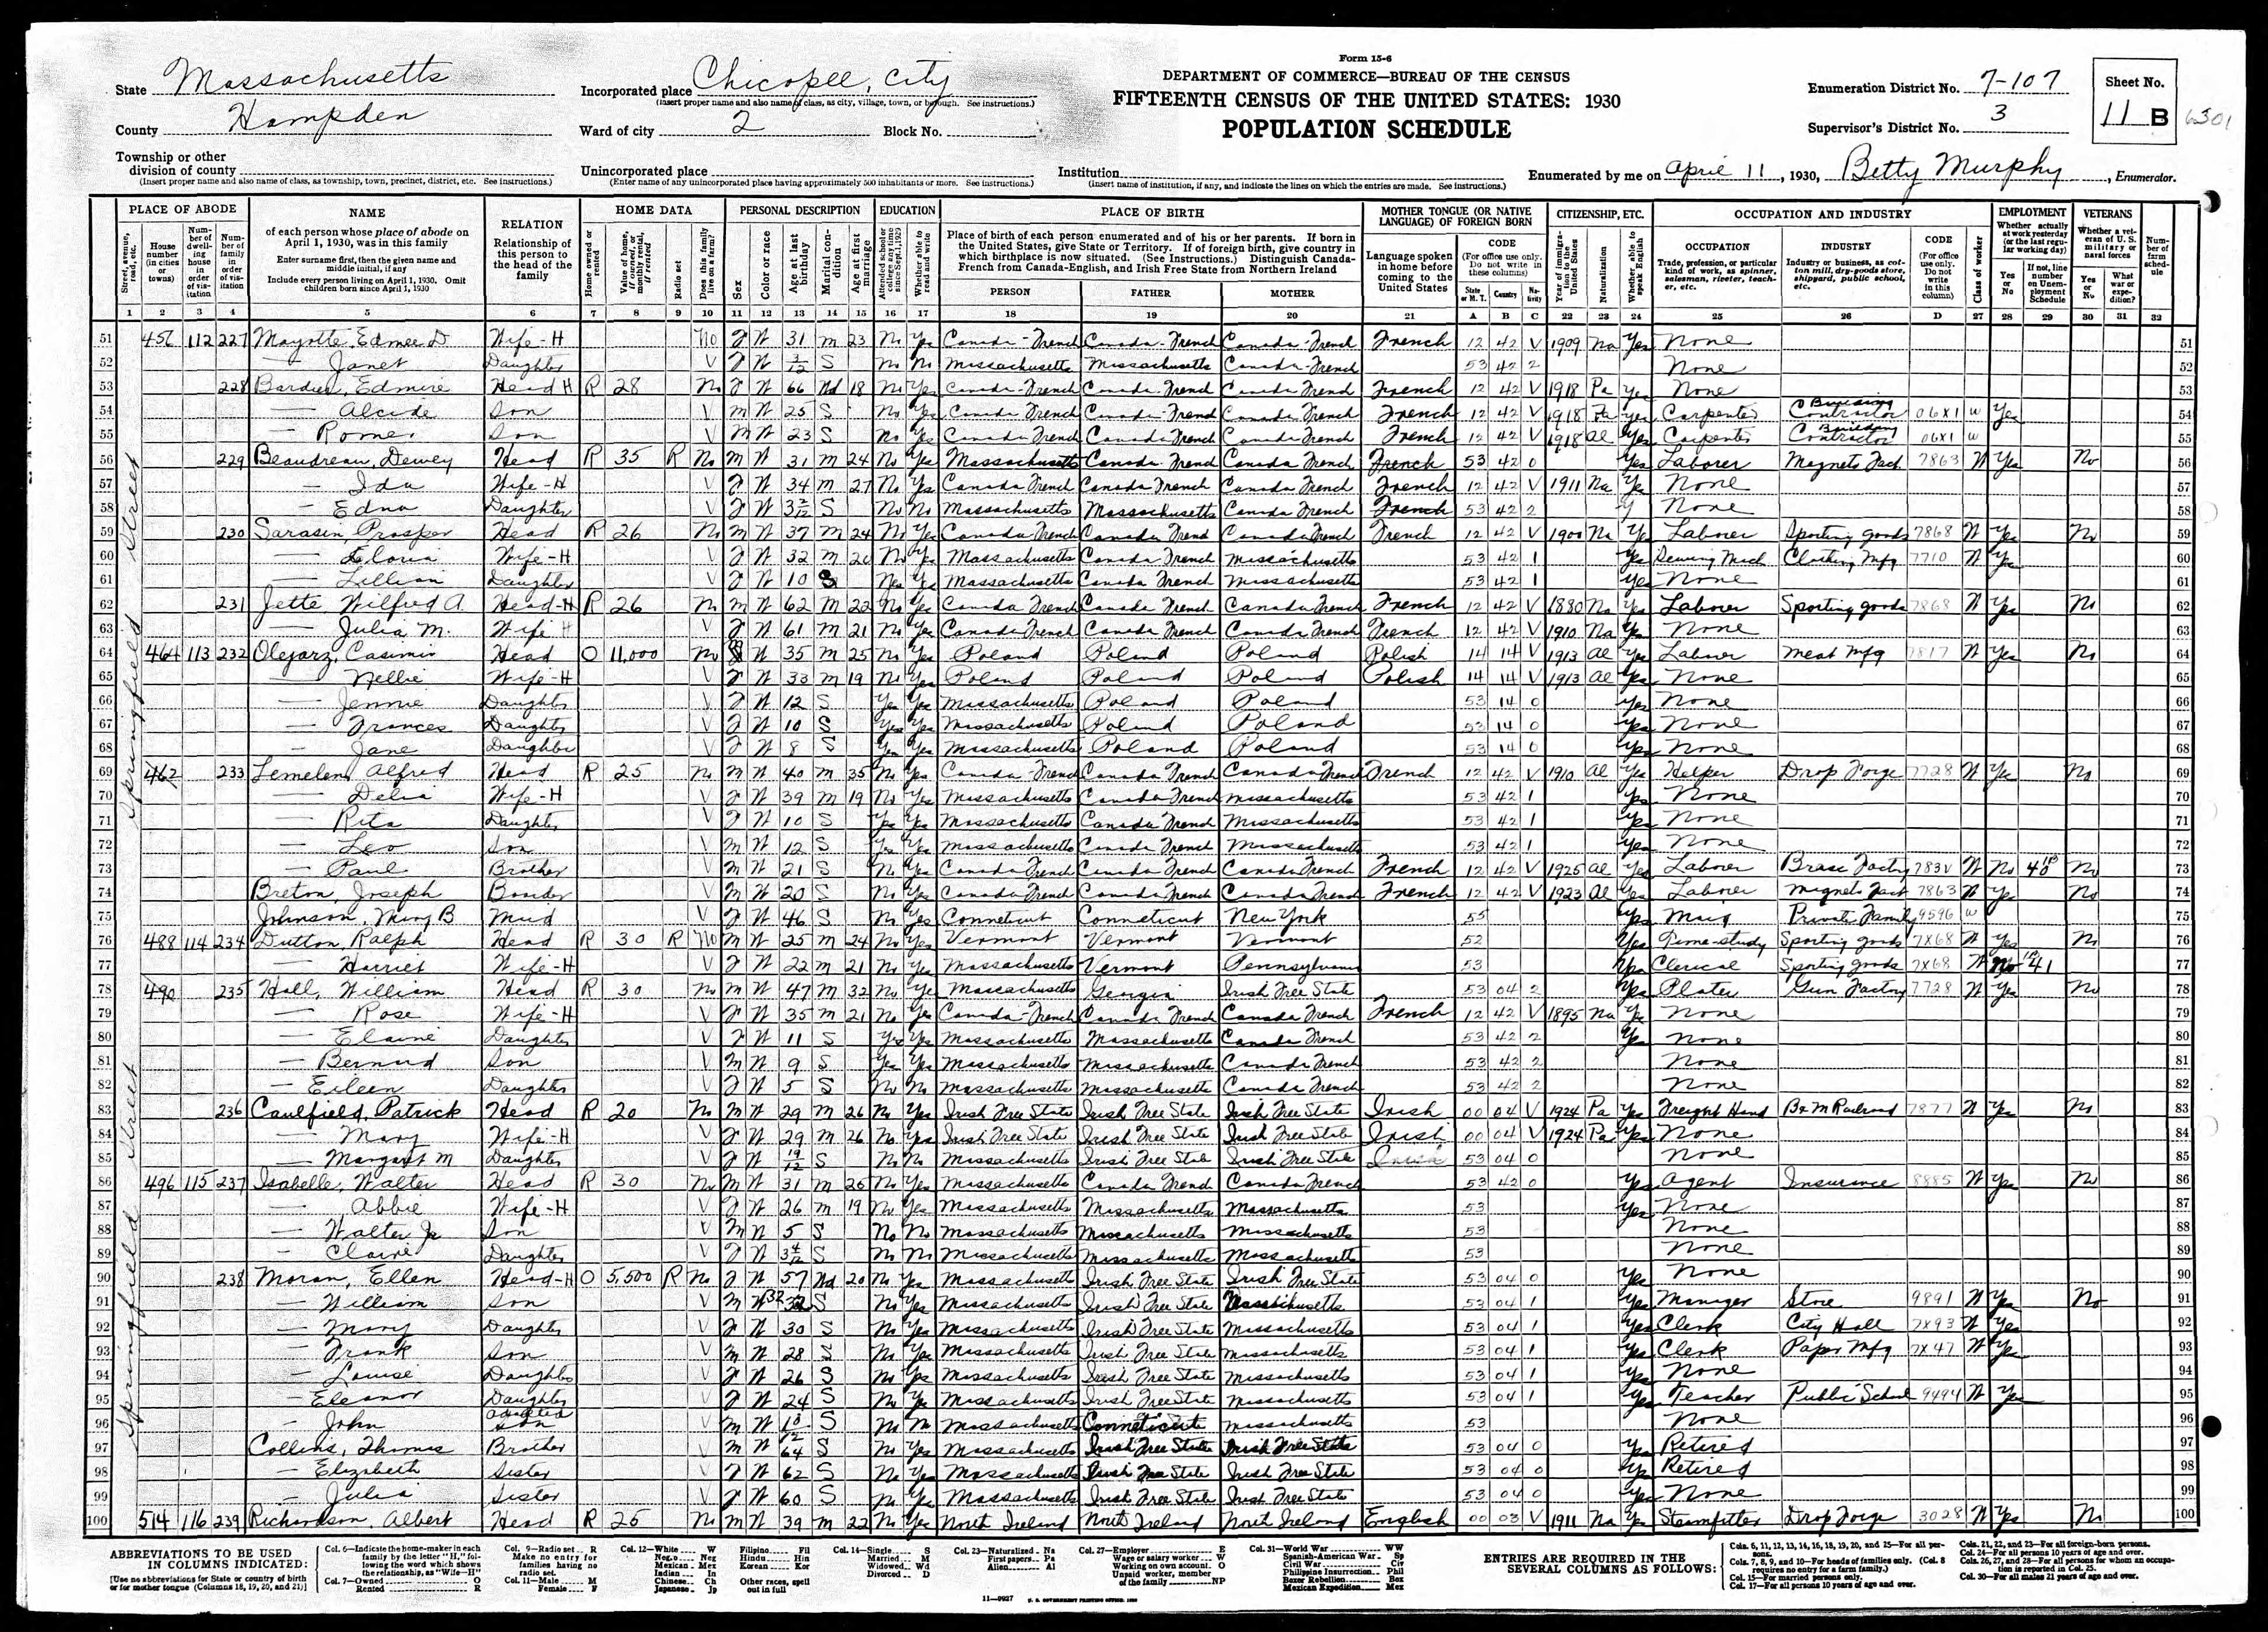 Form 15-6
DEPARTMENT OF COMMERCE—BUREAU OF THE CENSUS
FIFTEENTH CENSUS OF THE UNITED STATES: 1930
POPULATION SCHEDULE
State Massachusetts
County Hampden
Township or other division of county
(Insert proper name and also name of class, as township, town, precinct, district, etc. See instructions.)
Incorporated place Chicopee, City
(Insert proper name and also name of class, as city, village, town, or borough. See instructions.)
Ward of city 2 Block No.
Unincorporated place
(Enter name of any unincorporated place having approximately 500 inhabitants or more. See instructions.)
Institution
(Insert name of institution, if any, and indicate the lines on which the entries are made. See instructions.)
Enumeration District No. 7-107
Supervisor's District No. 3
Sheet No. 11 B
Enumerated by me on April 11, 1930, Betty Murphy, Enumerator.
PLACE OF ABODE NAME RELATION HOME DATA PERSONAL DESCRIPTION EDUCATION PLACE OF BIRTH MOTHER TONGUE (OR NATIVE LANGUAGE) OF FOREIGN BORN CITIZENSHIP, ETC. OCCUPATION AND INDUSTRY EMPLOYMENT VETERANS
Springfield Street
51 456 112 227 Mayotte, Edmee D Wife-H No F W 31 M 23 No Yes Canada-French Canada-French Canada-French French 12 42 V 1909 Na Yes None
52 — Janet Daughter V F W S No No Massachusetts Massachusetts Canada-French 53 42 2 None
53 228 Head H R 28 No F W 66 Wd 18 No Yes Canada-French Canada-French Canada-French French 12 42 V 1918 Pa Yes None
54 — Alcide Son V M W 25 S No Yes Canada French Canada French Canada French French 12 42 V 1918 Pa Yes Carpenter Building Contractor 06X1 W Yes
55 — Romeo Son V M W 23 S No Yes Canada French Canada French Canada French French 12 42 V 1918 Al Yes Carpenter Building Contractor 06X1 W
56 229 Beaudreau, Dewey Head R 35 R No M W 31 M 24 No Yes Massachusetts Canada French Canada French French 53 42 0 Yes Laborer Magneto Fact. 7863 W Yes No
57 — Ida Wife-H V F W 34 M 27 No Yes Canada French Canada French Canada French French 12 42 V 1911 Na Yes None
58 — Edna Daughter V F W 3 2/12 S No No Massachusetts Massachusetts Canada French French 53 42 2 None
59 230 Sarasin, Prosper Head R 26 No M W 37 M 24 No Yes Canada French Canada French Canada French French 12 42 V 1900 Na Yes Laborer Sporting goods 7868 W Yes No
60 — Wife-H V F W 32 M 20 No Yes Massachusetts Canada French Massachusetts 53 42 1 Yes Sewing Mach Clothing Mfg 7710 W Yes
61 — Lillian Daughter V F W 10 S Yes Yes Massachusetts Canada French Massachusetts 53 42 1 Yes None
62 231 Jette, Wilfred A. Head-H R 26 No M W 62 M 22 No Yes Canada French Canada French Canada French French 12 42 V 1880 Na Yes Laborer Sporting goods 7868 W Yes No
63 — Julia M. Wife H V F W 61 M 21 No Yes Canada French Canada French Canada French French 12 42 V 1910 Na Yes None
64 464 113 232 Olejarz, Casimir Head O 11,000 No M W 35 M 25 No Yes Poland Poland Poland Polish 14 14 V 1913 Al Yes Laborer Meat Mfg 7817 W Yes No
65 — Nellie Wife-H V F W 33 M 19 No Yes Poland Poland Poland Polish 14 14 V 1913 Al Yes None
66 — Jennie Daughter V F W 12 S Yes Yes Massachusetts Poland Poland 53 14 0 Yes None
67 — Frances Daughter V F W 10 S Yes Yes Massachusetts Poland Poland 53 14 0 Yes None
68 — Jane Daughter V F W 8 S Yes Yes Massachusetts Poland Poland 53 14 0 Yes None
69 462 233 Lemelin, Alfred Head R 25 No M W 40 M 35 No Yes Canada-French Canada French Canada French French 12 42 V 1910 Al Yes Helper Drop Forge 7728 W Yes No
70 — Delia Wife-H V F W 39 M 19 No Yes Massachusetts Canada French Massachusetts 53 42 1 Yes None
71 — Rita Daughter V F W 10 S Yes Yes Massachusetts Canada French Massachusetts 53 42 1 Yes None
72 — Leo Son V M W 12 S Yes Yes Massachusetts Canada French Massachusetts 53 42 1 Yes None
73 — Paul Brother V M W 21 S No Yes Canada French Canada French Canada French French 12 42 V 1925 Al Yes Laborer Brass Factory 783V W No 40 No
74 Breton, Joseph Boarder V M W 20 S No Yes Canada French Canada French Canada French French 12 42 V 1923 Al Yes Laborer Magneto Fact 7863 W Yes No
75 Johnson, Mary B Maid V F W 46 S No Yes Conneticut Conneticut New York 55 Yes Maid Private Family 9596 W
76 488 114 234 Dutton, Ralph Head R 30 R No M W 25 M 24 No Yes Vermont Vermont Vermont 52 Yes Time-study Sporting goods 7X68 W Yes No
77 — Harriet Wife-H V F W 22 M 21 No Yes Massachusetts Vermont Pennsylvania 53 Yes Clerical Sporting goods 7X68 W No 41
78 490 235 Hall, William Head R 30 No M W 47 M 32 No Yes Massachusetts Georgia Irish Free State 53 04 2 Yes Plater Gun Factory 7728 W Yes No
79 — Rose Wife-H V F W 35 M 21 No Yes Canada-French Canada French Canada French French 12 42 V 1895 Na Yes None
80 — Elaine Daughter V F W 11 S Yes Yes Massachusetts Massachusetts Canada French 53 42 2 Yes None
81 — Bernard Son V M W 9 S Yes Yes Massachusetts Massachusetts Canada French 53 42 2 None
82 — Eileen Daughter V F W 5 S No No Massachusetts Massachusetts Canada French 53 42 2 None
83 236 Caulfield, Patrick Head R 20 No M W 29 M 26 No Yes Irish Free State Irish Free State Irish Free State Irish 00 04 V 1924 Pa Yes Freight Hand B & M Railroad 7877 W Yes No
84 — Mary Wife-H V F W 29 M 26 No Yes Irish Free State Irish Free State Irish Free State Irish 00 04 V 1924 Pa Yes None
85 — Margaret M Daughter V F W 19/12 S No No Massachusetts Irish Free State Irish Free State Irish 53 04 0 None
86 496 115 237 Isabelle, Walter Head R 30 No M W 31 M 25 No Yes Massachusetts Canada French Canada French 53 42 0 Yes Agent Insurance 8885 W Yes No
87 — Abbie Wife-H V F W 26 M 19 No Yes Massachusetts Massachusetts Massachusetts 53 Yes None
88 — Walter Jr Son V M W 5 S No No Massachusetts Massachusetts Massachusetts 53 None
89 — Claire Daughter V F W 3 4/12 S No No Massachusetts Massachusetts Massachusetts 53 None
90 238 Moran, Ellen Head-H O 5,500 R No F W 57 Wd 20 No Yes Massachusetts Irish Free State Irish Free State 53 04 0 Yes None
91 — William Son V M W 32 S No Yes Massachusetts Irish Free State Massachusetts 53 04 1 Yes Manager Store 9891 W Yes No
92 — Mary Daughter V F W 30 S No Yes Massachusetts Irish Free State Massachusetts 53 04 1 Yes Clerk City Hall 7X93 W Yes
93 — Frank Son V M W 28 S No Yes Massachusetts Irish Free State Massachusetts 53 04 1 Yes Clerk Paper Mfg 7X47 W Yes
94 — Louise Daughter V F W 26 S No Yes Massachusetts Irish Free State Massachusetts 53 04 1 Yes None
95 — Eleanor Daughter V F W 24 S No Yes Massachusetts Irish Free State Massachusetts 53 04 1 Yes Teacher Public School 9494 W Yes
96 — John adopted Son V M W S No No Massachusetts Conneticut Massachusetts 53 None
97 Collins, Thomas Brother V M W 64 S No Yes Massachusetts Irish Free State Irish Free State 53 04 0 Yes Retired
98 — Elizabeth Sister V F W 62 S No Yes Massachusetts Irish Free State Irish Free State 53 04 0 Yes Retired
99 — Julia Sister V F W 60 S No Yes Massachusetts Irish Free State Irish Free State 53 04 0 Yes None
100 514 116 239 Richardson, Albert Head R 25 No M W 39 M 22 No Yes North Ireland North Ireland North Ireland English 00 03 V 1911 Na Yes Steamfitter Drop Forge 3028 W Yes No
ABBREVIATIONS TO BE USED IN COLUMNS INDICATED:
ENTRIES ARE REQUIRED IN THE SEVERAL COLUMNS AS FOLLOWS:
11—9927